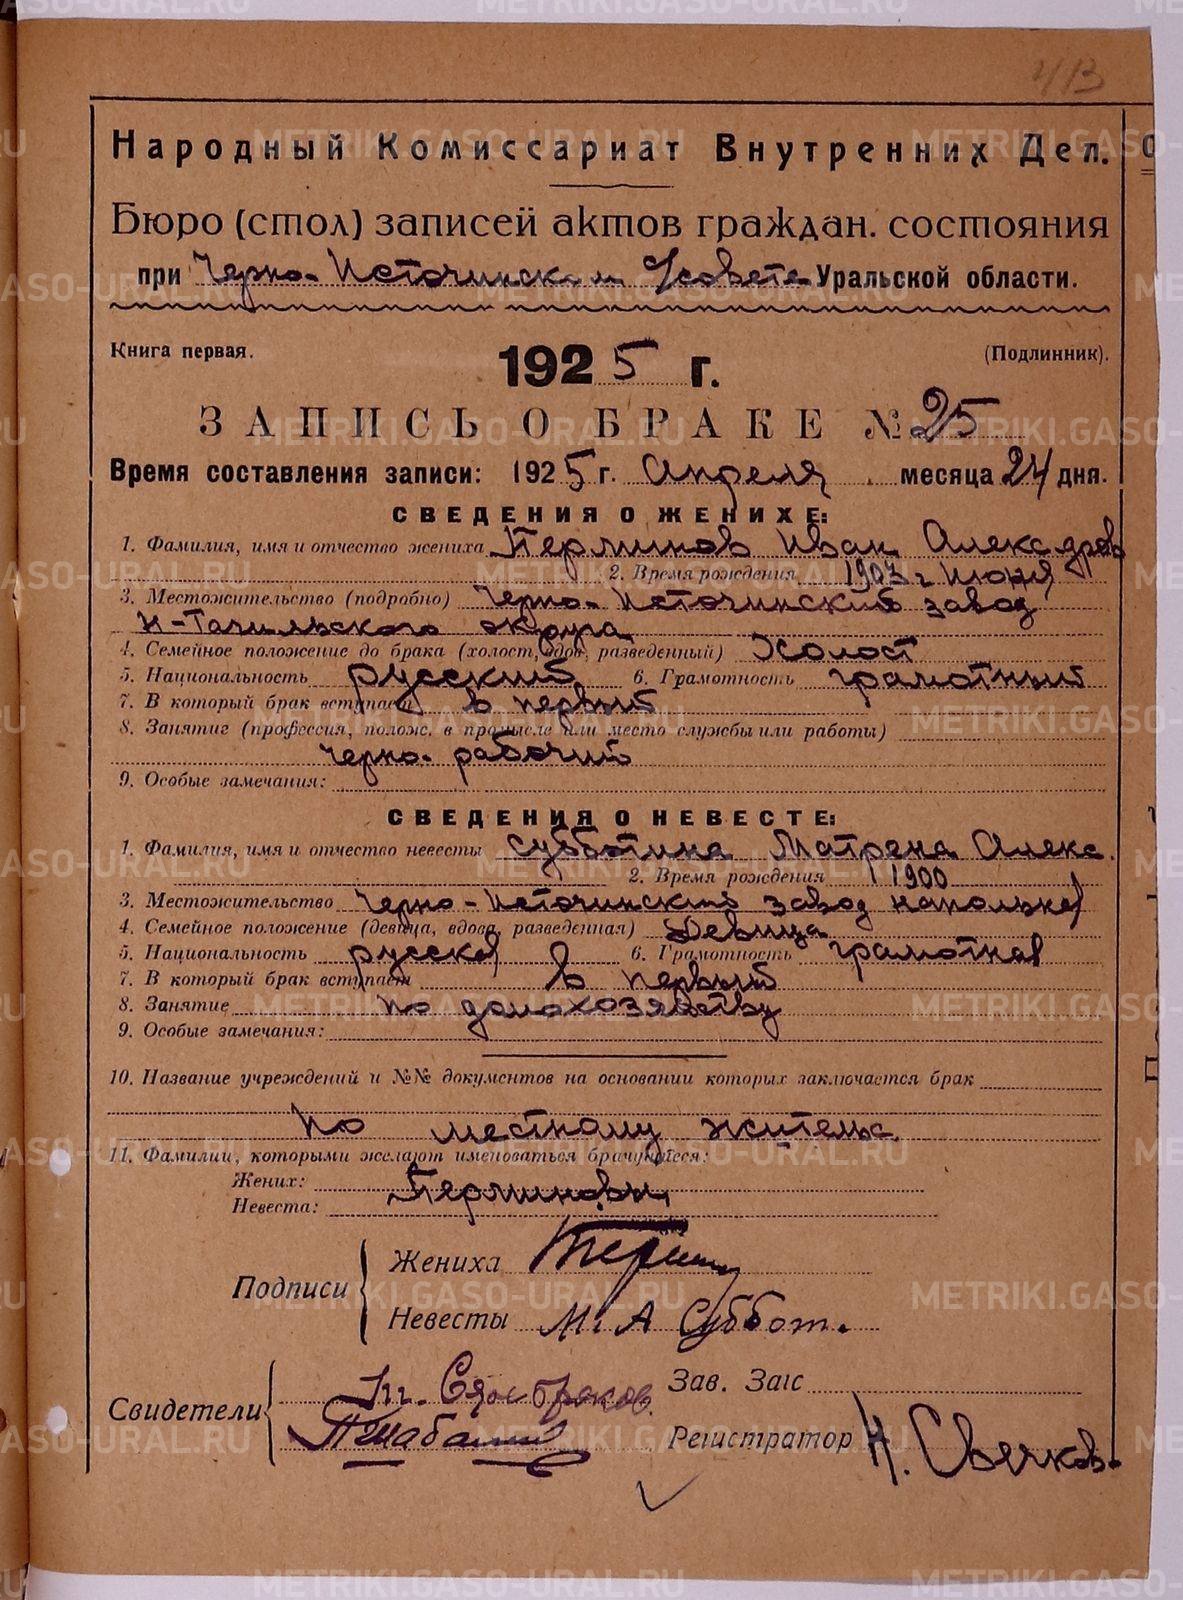 413
Народный Комиссариат Внутренних Дел.
Бюро (стол) записей актов граждан. состояния
при Черно-Источинском Усовете Уральской области.
Книга первая. (Подлинник).
1925 г.
ЗАПИСЬ О БРАКЕ № 25
Время составления записи: 1925 г. Апреля месяца 24 дня.
СВЕДЕНИЯ О ЖЕНИХЕ:
1. Фамилия, имя и отчество жениха Перминов Иван Александров
2. Время рождения 1903 г Июня
3. Местожительство (подробно) Черно-Источинский завод
Н-Тагильского округа
4. Семейное положение до брака (холост, вдов, разведенный) Холост
5. Национальность русский 6. Грамотность грамотный
7. В который брак вступает в первый
8. Занятие (профессия, полож. в промысле или место службы или работы)
Черно-рабочий
9. Особые замечания:
СВЕДЕНИЯ О НЕВЕСТЕ:
1. Фамилия, имя и отчество невесты Субботина Матрена Алекс.
2. Время рождения 1900
3. Местожительство Черно-Источинский завод напольная
4. Семейное положение (девица, вдова, разведенная) Девица
5. Национальность русская 6. Грамотность грамотная
7. В который брак вступает в первый
8. Занятие по домохозяйству
9. Особые замечания:
10. Название учреждений и №№ документов на основании которых заключается брак
по местному жительс
11. Фамилии, которыми желают именоваться брачущиеся:
Жених: Перминовы
Невеста:
Подписи
Жениха Перми
Невесты М. А Суббот.
Свидетели
Зав. Загс
Регистратор Н. Свечков
METRIKI.GASO-URAL.RU